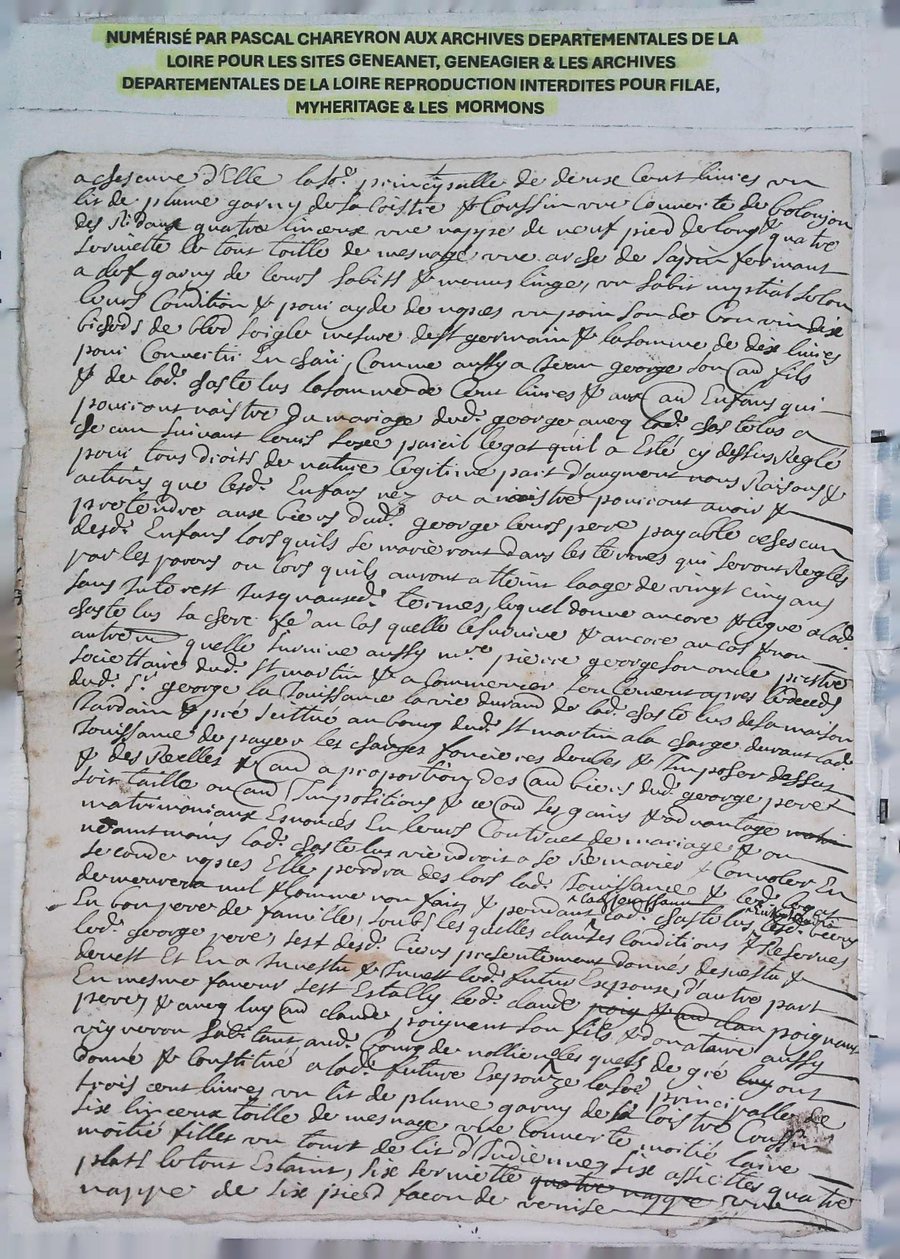 NUMÉRISÉ PAR PASCAL CHAREYRON AUX ARCHIVES DEPARTEMENTALES DE LA
LOIRE POUR LES SITES GENEANET, GENEAGIER & LES ARCHIVES
DEPARTEMENTALES DE LA LOIRE REPRODUCTION INTERDITES POUR FILAE,
MYHERITAGE & LES MORMONS
a chescune d'Elle la so.e principalle de deux Cent livres un
lit de plume garny de sa coistre & Coussin une Couverte de
des Ridaux quatre linceux une nappe de neuf pied de long & quatre
serviette le tout toille de mesnage une arche de sapin fermant
a clef garny de leurs habits & menus linge, un habit nuptial selon
leurs Condition & pour ayde de nopces un poinson de bon vin dix
bichets de bled soigle mesure de st germain & la somme de dix livres
pour Convertir En chair, Comme aussy a Jean george son aud fils
& de lad. chastelus la somme de Cent livres & aux aud Enfans qui
pourront naistre du mariage dud. george avecq lad. chastelus a
chescun suivant leurs sexe pareil legat quil a Esté cy dessus Reglé
pour tous droits de nature legitime part d'augment noms Raisons &
actions que lesd. Enfans nez ou a naistre pourront avoir &
pretendre aux biens dud. george leurs pere payable a chescun
desd. Enfans lors quils se marieront dans les termes qui seront Reglés
par les parens ou lors quils auront atteint laage de vingt cinq ans
sans Interest Jusquausd. termes, lequel donne ancore & legue a lad.
chastelus sa chere fe. au Cas quelle le survive & ancore au cas & non
autrem quelle survive aussy mre. pierre george son oncle prestre
societtaire dud. st martin & a Commencer seulement apres le deceds
dud. sr. george la Jouissance la vie durand de lad. chastelus de la maison
Jardain & pré scittué au bourg dud. st martin a la charge durant lad.
Jouissance de payer les charges foncieres deubes & Imposer dessus
& des Reelles & aud a proportion des aud biens dud. george pere &
soit taille ou aud Impositions & ce ou ses gains & advantage
matrimoniaux Enoncés En leurs Contract de mariage & ou
neantmoins lad. chastelus viendroit a se Remarier & Convoler En
seconde nopces Elle perdra des lors lad. Jouissance & led. legat
demeurera nul & Comme non fait, & pendant lad. Jouissance lad. chastelus lesd. biens
En bon pere de famille, soubs les quelles clauses Conditions & Reserves
led. george pere, sest desd. biens presentement donnés devestu &
devest Et En a Investu & Invest led. futur Expoux, d'autre part
En mesme faveur sest Estally led. claude poignant
pere, & avecq luy aud claude poignant son fils & donataire aussy
vigneron had. tant aud. bourg de nollieu, les quels de gré luy ont
donné & Constitué a lad. future Expouze la so.e principalle de
trois cent livres un lit de plume garny de sa coistre Coussin
six linceux toille de mesnage une Couverte moitié laine
moitié fillet un tourt de lit d'Indienne, six assiettes quatre
plats le tout Estaint, six serviette quatre nappe une
nappe de six pied facon de venise